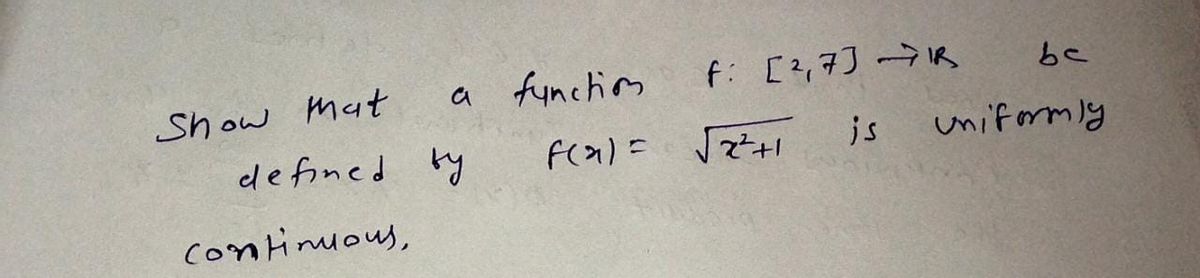 Show that a function f: [2,7] → ℝ be
defined by f(x) = √x²+1 is uniformly
continuous.